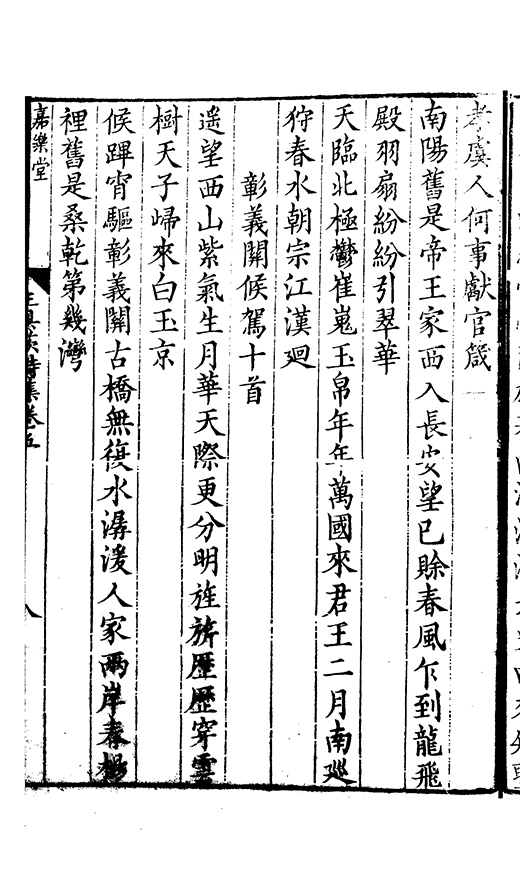 考虞人何事獻官箴
南陽舊是帝王家西入長安望已賒春風乍到龍飛
殿羽扇紛紛引翠華
天臨北極鬱崔嵬玉帛年年萬國來君王二月南廵
狩春水朝宗江漢廻
彰義關候駕十首
遥望西山紫氣生月華天際更分明旌旂歷歷穿雲
樹天子歸來白玉京
候蹕宵驅彰義關古橋無復水潺湲人家兩岸春楊
裡舊是桑乾第幾灣
嘉樂堂
詩集卷五
八